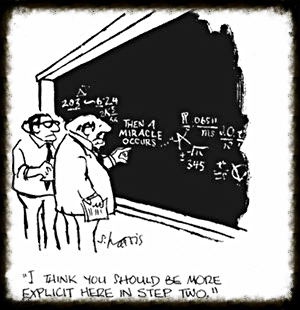 THEN A
MIRACLE
OCCURS...
345
s.harris
"I THINK YOU SHOULD BE MORE
EXPLICIT HERE IN STEP TWO."